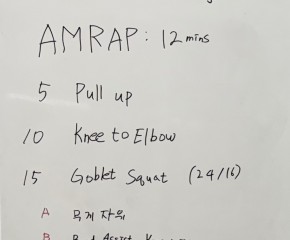 AMRAP: 12 mins
5 Pull up
10 Knee to Elbow
15 Goblet Squat (24/16)
A 무게 자유
B